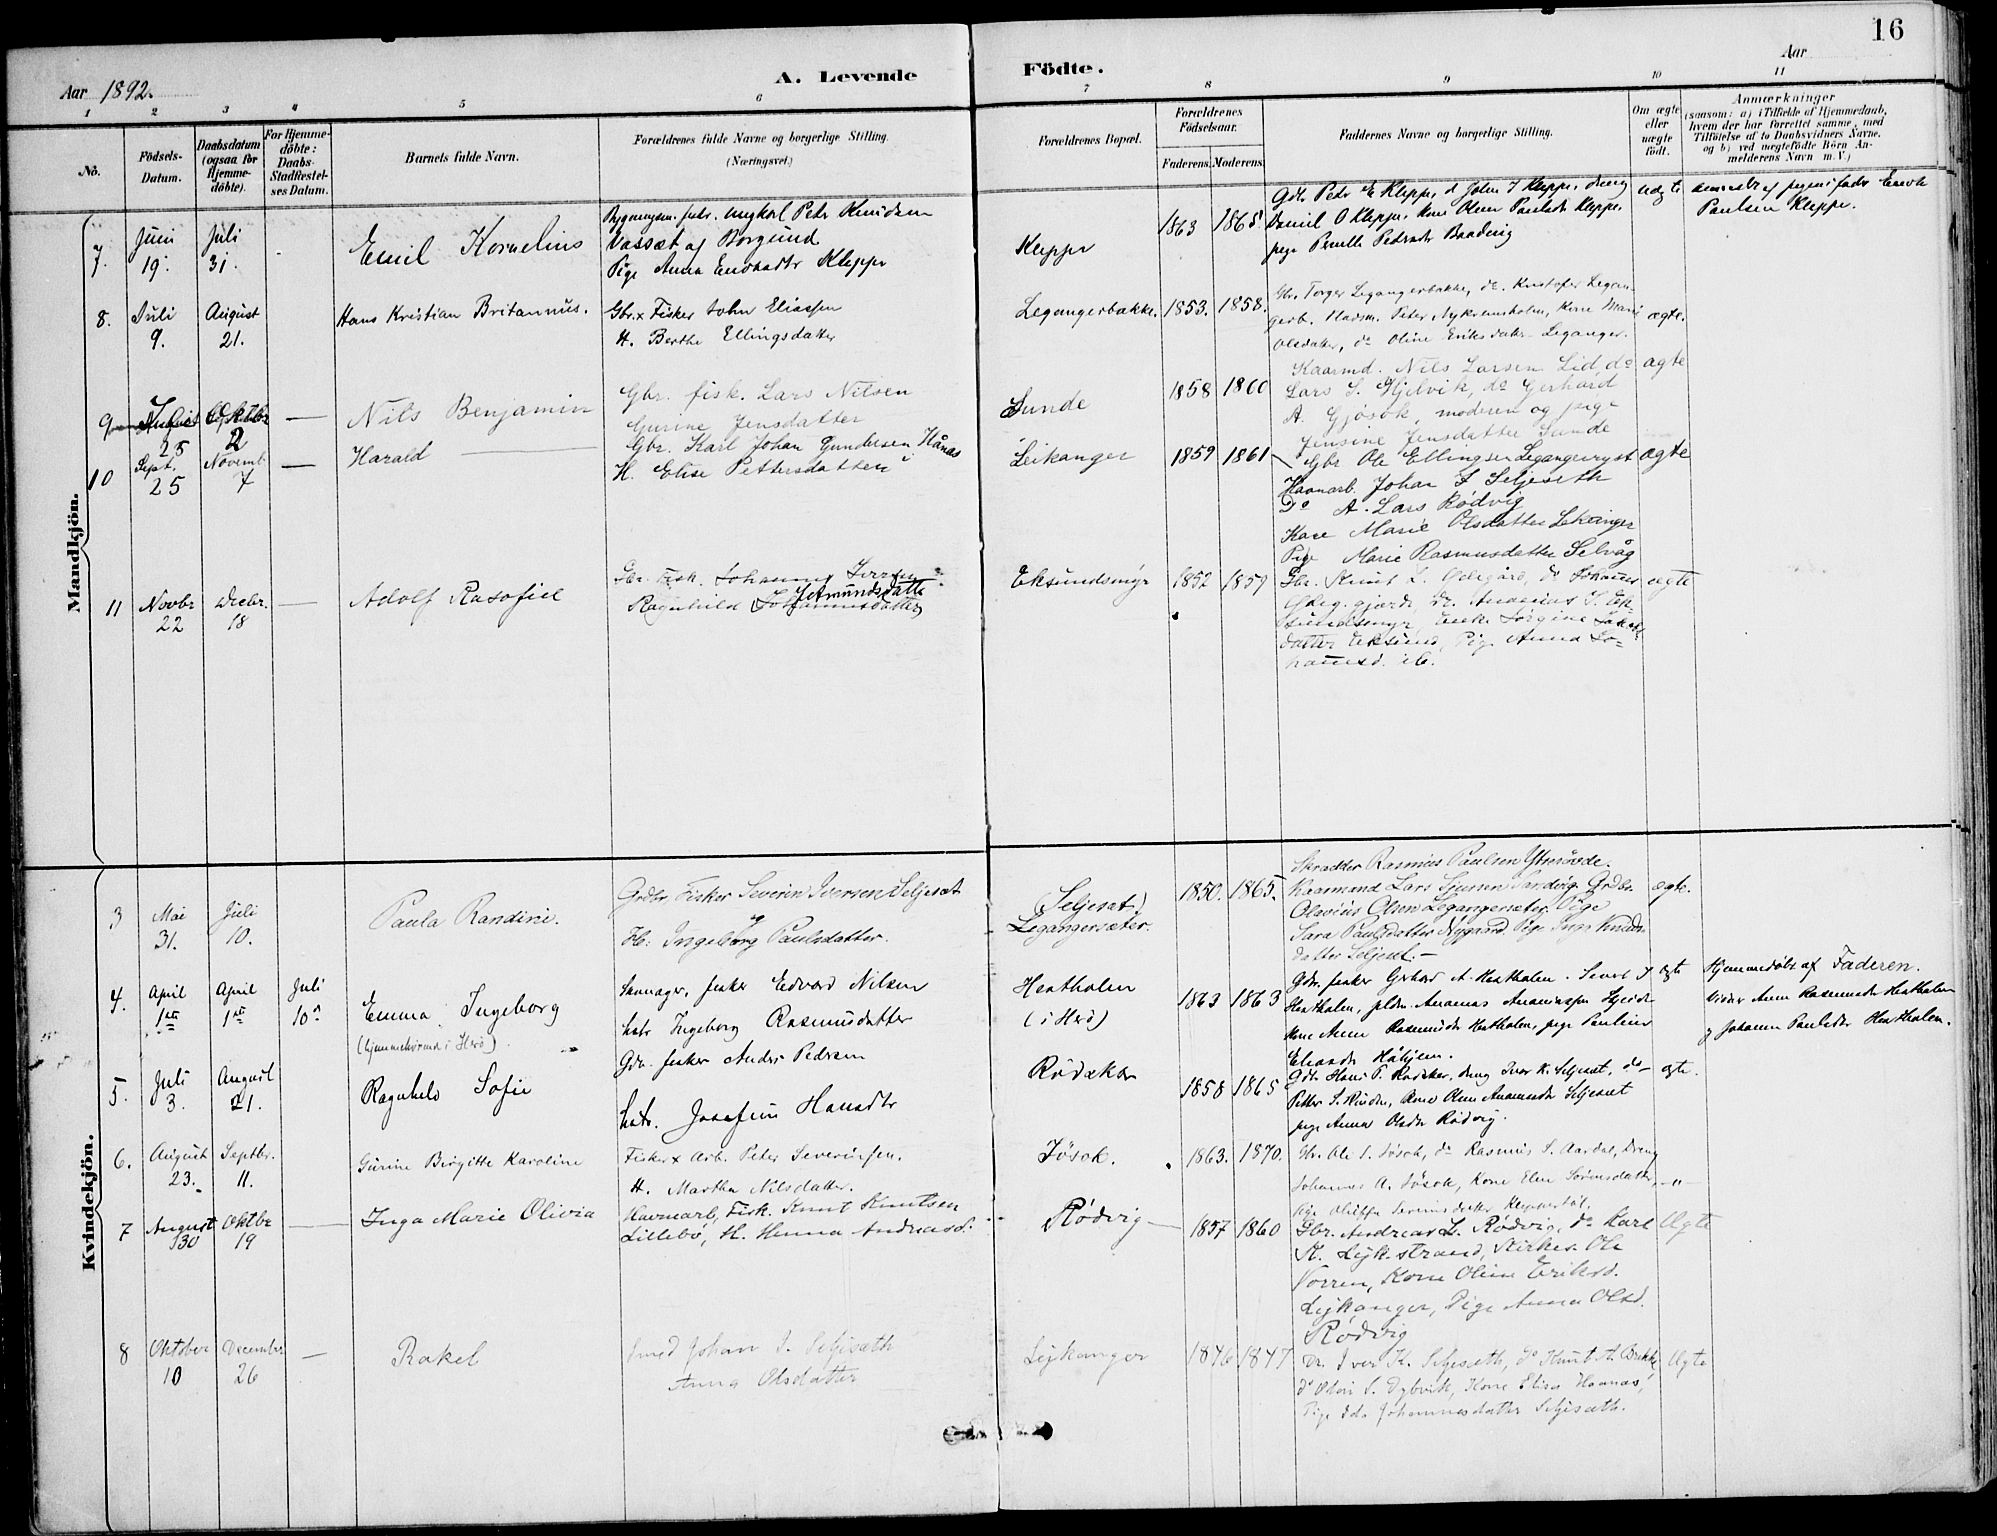 16
Aar 1892.
A. Levende Födte.
Aar
1 2 3 4 5 6 7 8 9 10 11
No.
Födsels-Datum.
Daabsdatum (ogsaa for Hjemme-döbte).
For Hjemme-döbte: Daabs-Stadfæstel-ses Datum.
Barnets fulde Navn.
Forældrenes fulde Navne og borgerlige Stilling. (Næringsvei.)
Forældrenes Bopæl.
Forældrenes Födselsaar.
Faderens. Moderens.
Faddernes Navne og borgerlige Stilling.
Om ægte eller uægte födt.
Anmærkninger
(saasom: a) i Tilfælde af Hjemmedaab,
hvem der har forrettet samme, med
Tilföielse af to Daabsvidners Navne,
og b) ved uægtefödte Börn An-
melderens Navn m. V.)
Mandkjön.
7. Juni 19. Juli 31. -
Emil Kornelius
ungkarl Peter Knudsen
Vassæt af Borgund
Pige Anna Enoksdtr Kleppe
Kleppe
1863 1865.
Gdr. Petr E Kleppe, d John J Kleppe, dreng
Daniel O Kleppe, kone Oline Paulsdr Kleppe,
pige Pernille Pedersdr
uægte
anmeldt af pigens fader Enok
Paulsen Kleppe.
8. Juli 9. August 21.
Hans Kristian Britannus.
Gbr. x Fisker John Eliassen
H. Berthe Ellingsdatter
Legangerbakke.
1853. 1858.
Gbr. Torger Legangerbakke, do. Kristofer Legan-
gerb. Peter Myklebustholm, Kone Mari
Olsdatter, do Oline Eriksdatr. Leganger.
ægte.
9 August 25 Oktbr 2 —
Nils Benjamin
Gbr. fisk. Lars Nilsen
Gurine Jensdatter
Sunde
1858 1860
Kaarmd. Nils Larsen Lid, do
Lars S. Hjelvik, do Gerhard
A. Gjøsok, moderen og pige
Jensine Jensdatter Sunde
ægte
10 Sept. 25 Novemb. 7 —
Harald
Gbr. Karl Johan Gundersen Hånas
H. Elise Pettersdatter
Leikanger
1859 1861
Gbr Ole Ellingsen
Havnarb. Johan I Seljeseth
Do A. Lars Rødvig
Kone Marie Olsdatter Lekanger
Pige Marie Rasmusdatter Selvåg
ægte
11 Novbr 22 Decbr. 18 —
Adolf Rasofiel
Gbr. Fisk. Johannes Iversen
Ragnhild Johannesdatter Jetmundsdatte
Eksundsmyr
1852 1857
Gbr. Knut L. Ødegård, do Johannes
Ødeg.gjerde, Dr. Ananias I. Ek-
sundsmyr, Enke Jørgine Jakobs
datter Eksund, Pige Anna Jo-
hannesd. ib.
ægte
Kvindekjön.
3 Mai 31. Juli 10.
Paula Randine.
Grdbr. Fisker Severin Iversen Seljesæt
og
H: Ingeborg Paulsdatter.
(Seljesæt)
Legangersæter.
1850. 1865.
Skrædder Rasmus Paulsen Ytrehovde.
Kaarmand Lars Sjursen Sandvig. Grdbr.
Olavius Olsen Legangersæter. Pige
Sara Paulsdatter Nygaard. Pige Inga Knuds
datter Seljeset. —
ægte.
4. April 1ste April 1ste Juli 10de
Emma Ingeborg
(hjemmehørende i Herø)
fisker Edvard Nilsen
hstr Ingeborg Rasmusdatter
Hestholen
(i Herø)
1863 1863
Gdr. fisker Gerhard A. Hestholen.
Hestholen, Ananias Ananiassen
kone Anne Rasmusdr Hestholen, pige Pauline
ægte
Hjemmedøbt af Faderen.
Vidner Anne Rasmusdr Hestholen
og Johanne Paulsdtr Hestholen.
5. Juli 3. August 21.
Ragnhild Sofie
Gdr. fisker Anders Pedersen
hstr. Josefine Hansdtr
Rødeker
1858 1865
Gdr. Hans P. Rødeker, dreng Iver K. Seljesæt, do
Petter S. kone Oline Seljesæt
pige Anna Olsdr Rødvig.
ægte.
6. August 23. Septbr. 11.
Gurine Birgitte Karoline
Fisker x Arb. Peter Severinsen.
H. Martha Nilsdatter.
Jøsok.
1863. 1870.
Gbr. Ole S. Jøsok, do Rasmus S. Aardal, Dreng
Johannes A. Jøsok, Kone Elen Sørensdatter,
—"—
7 August 30 Oktbr 19 —
Inga Marie Olivia
Havnearb, Fisk. Knut Knutsen
Lillebø, H. Hanna Andreasd.
Rødvig —
1857 1860
Gbr. Andreas L. Rødvig, do Karl
K. Lejk.strand, Kirkes. Ole
Vorren, Kone Oline Eriksd.
Lejkanger, Pige Anna Olsd.
Rødvig
Ægte
8 Oktober 10 December 26 —
Rakel
Smed Johan I. Seljesæth
Anna Olsdatter
Lejkanger
1846 1847
Dr. Iver K. Seljesæth, do Knut A. Brekke
do Olai S. Dybvik, Kone Elisa Haanas,
Pige Ida Johannesdatter Seljesæth.
Ægte